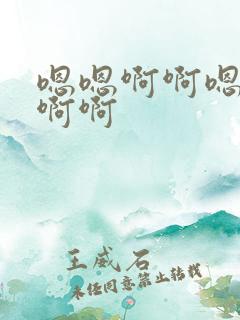 嗯嗯啊啊嗯
啊啊
王威石
未经同意禁止转载